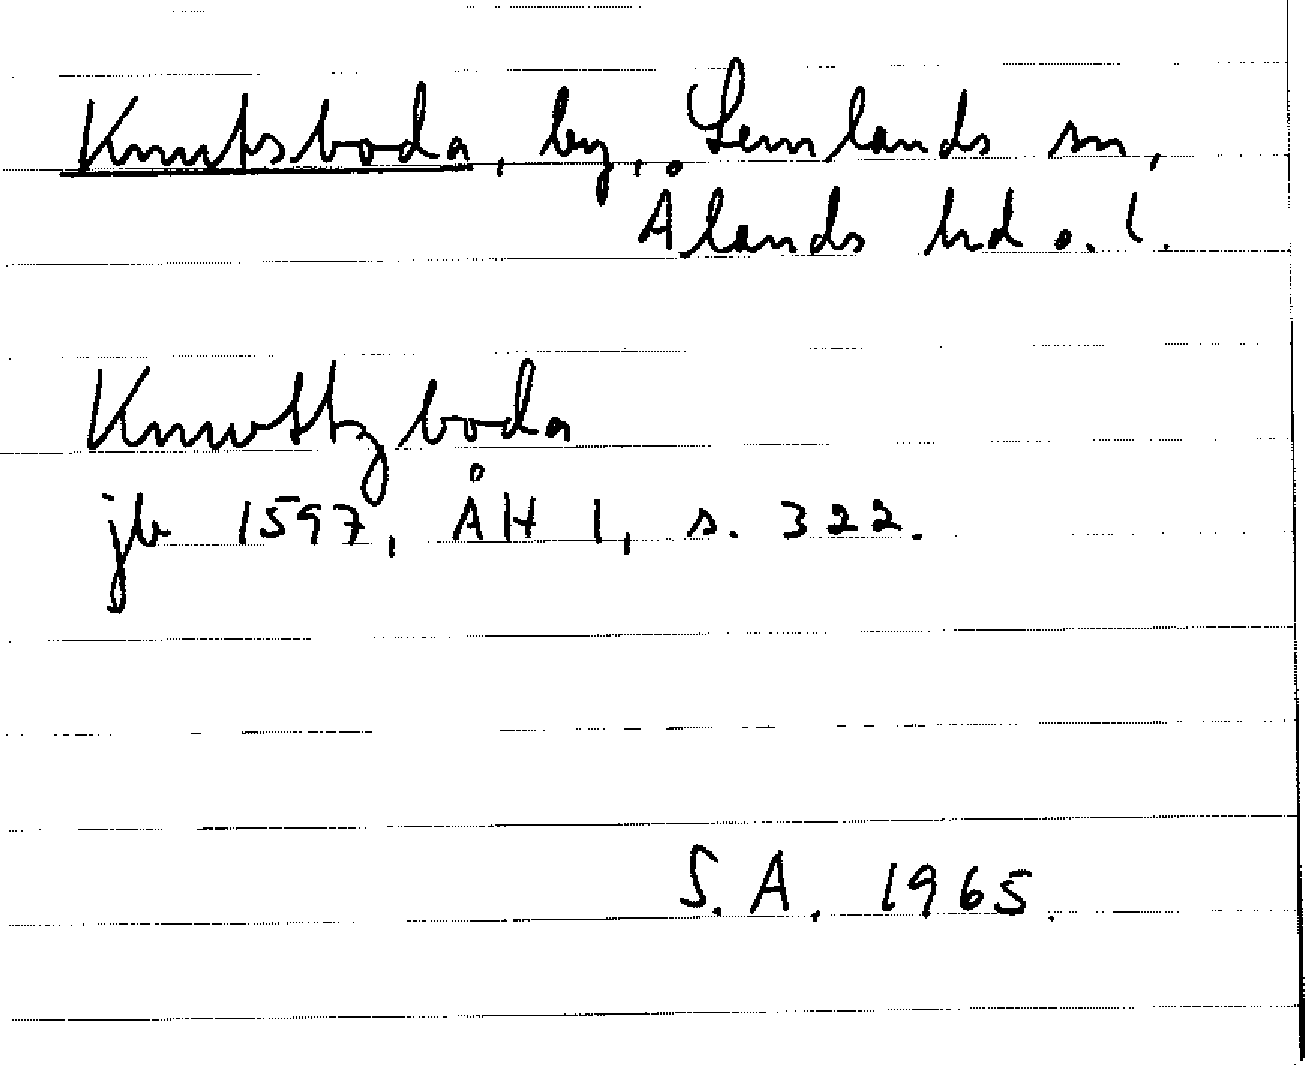 Knutsboda, by, Lemlands sn,
Ålands hd o. l.
Knwttzboda
jb 1597, ÅH 1, s. 322.
S. A. 1965.